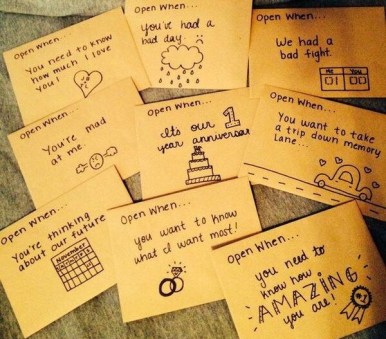 Open When...
You need to know
how much I love
you!
Open When...
You've had a
bad day.
Open When...
We had a
bad fight.
Me You
Open When...
You're mad
at me
Open When...
It's our 1
year anniversary
Open When...
You want to take
a trip down memory
Lane...
Open When...
You're thinking
about our future
November
Open When...
you want to know
what I want most!
Open When...
you need to
know how
AMAZING
you are!
#1